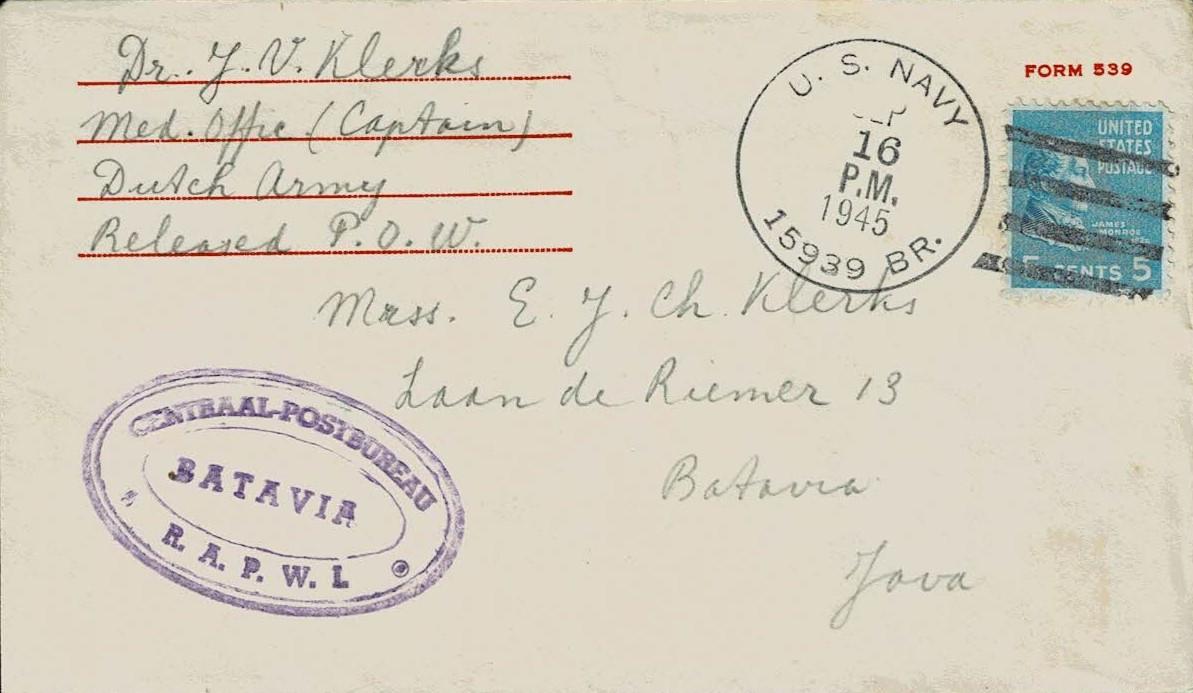 Dr. J. V. Klerks
Med. Offic (Captain)
Dutch Army
Released P.O.W.
U. S. NAVY
SEP
16
P.M.
1945
15939 BR.
FORM 539
UNITED
STATES
POSTAGE
JAMES
MONROE
5 CENTS 5
Mrss. E. J. Ch. Klerks
Laan de Riemer 13
Batavia
Java
CENTRAAL-POSTBUREAU
BATAVIA
R. A. P. W. I.